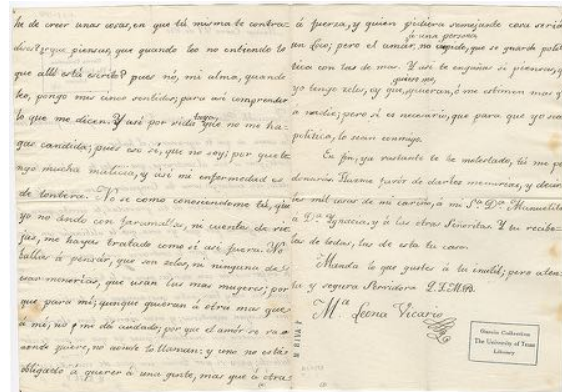 he de creer unas cosas, en que tú misma te contra-
dices? ¿que piensas, que quando leo no entiendo lo
que alli está escrito? pues nó, mi alma, quando
leo, pongo mis cinco sentidos; para asi comprender
lo que me dicen. Y asi por vida tuya, que no me ha-
gas candida; pues eso si, que no soy; por que te-
ngo mucha malicia, y asi mi enfermedad es
de tontera. No se como conosiendome tú, que
yo no ando con faramallas, ni cuentos de vie-
jas, me hayas tratado como si asi fuera. No
ballas á pensár, que son zelos, ni ninguna de
esas menerias, que usan las mas mugeres; por
que para mi, aunque quieran á otra mas que
á mi; no me dá cuidado; por que el amór se va a
onde quiere, no aonde lo llaman; y uno no está
obligado á querer á una gente, mas que á otra
á fuerza, y quien pidiera semejante cosa seriá
un loco; pero el amar á una persona no impide, que se guarde polí-
tica con las de mas. Y asi te engañas si piensas, q
yo tengo zelos, ay que quieran, ó me estimen mas q
á nadie; pero si es necesario, que para que yo sea
política, lo sean conmigo.
En fin, ya vastante te he molestado, tú me per-
donarás. Hazeme favór de darles memorias, y decir-
les mil cosas de mi cariño, á mi Sª. Dª. Manuelita
á Dª. Ygnacia, y á las otras Señoritas. Y tu recibe-
las de todas, las de esta tu casa.
Manda lo que gustes á tu inutil; pero aten-
ta y segura Servidora Q.T.M.B.
Mª Leona Vicario
García Collection
The University of Texas
Library